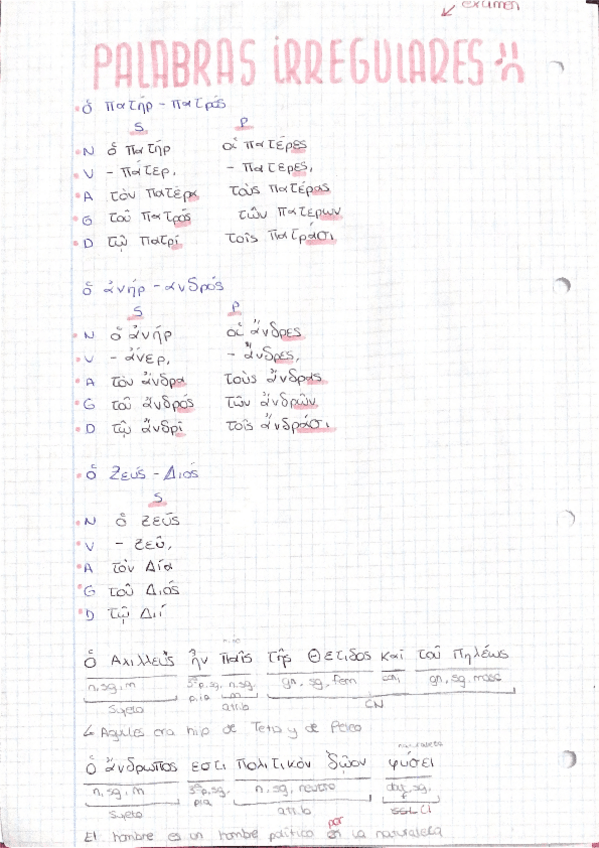 examen
PALABRAS IRREGULARES
ὁ πατήρ - πατρός
S P
N ὁ πατήρ οἱ πατέρες
V - πάτερ, - πατέρες,
A τὸν πατέρα τοὺς πατέρας
G τοῦ πατρός τῶν πατέρων
D τῷ πατρί τοῖς πατράσι
ὁ ἀνήρ - ανδρός
S P
N ὁ ἀνήρ οἱ ἄνδρες
V - ἄνερ, - ἄνδρες,
A τὸν ἄνδρα τοὺς ἄνδρας
G τοῦ ἄνδρός τῶν ἄνδρῶν
D τῷ ἄνδρί τοῖς ἄνδράσι
ὁ Ζεύς - Διός
S
N ὁ Ζεύς
V - Ζεῦ,
A τὸν Δία
G τοῦ Διός
D τῷ Διί
ὁ Αχιλλεὺς ἦν παῖς τῆς Θετιδος καὶ τοῦ Πηλέως
n, sg, m 3ªp.sg. n,sg. gn, sg, fem conj gn, sg. masc
p.ia m
Sujeto atrib CN
↳ Aquiles era hijo de Tetis y de Peleo
naturaleza
ὁ ἄνδρωπος εστι πολιτικὸν ζῷον φύσει
n, sg, m 3ªp.sg. n, sg, neutro dat, sg.
pia
Sujeto atrib CCL CI
por
El hombre es un hombre político en la naturaleza